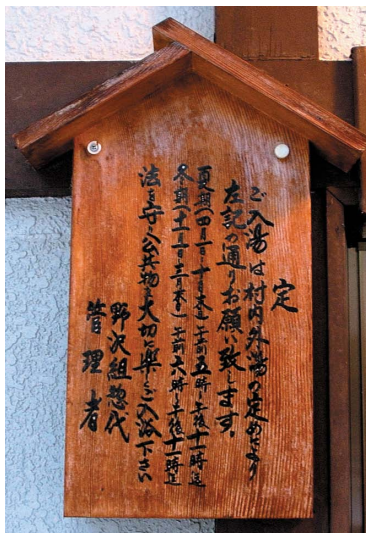 定
ご入湯は村内外湯の定めにより
左記の通りお願い致します。
夏期(四月一日〜十一月末)午前五時〜午後十一時迄
冬期(十二月一日〜三月末)午前六時〜午後十一時迄
法を守り公共物を大切に楽しくご入浴下さい
野沢組惣代
管理者